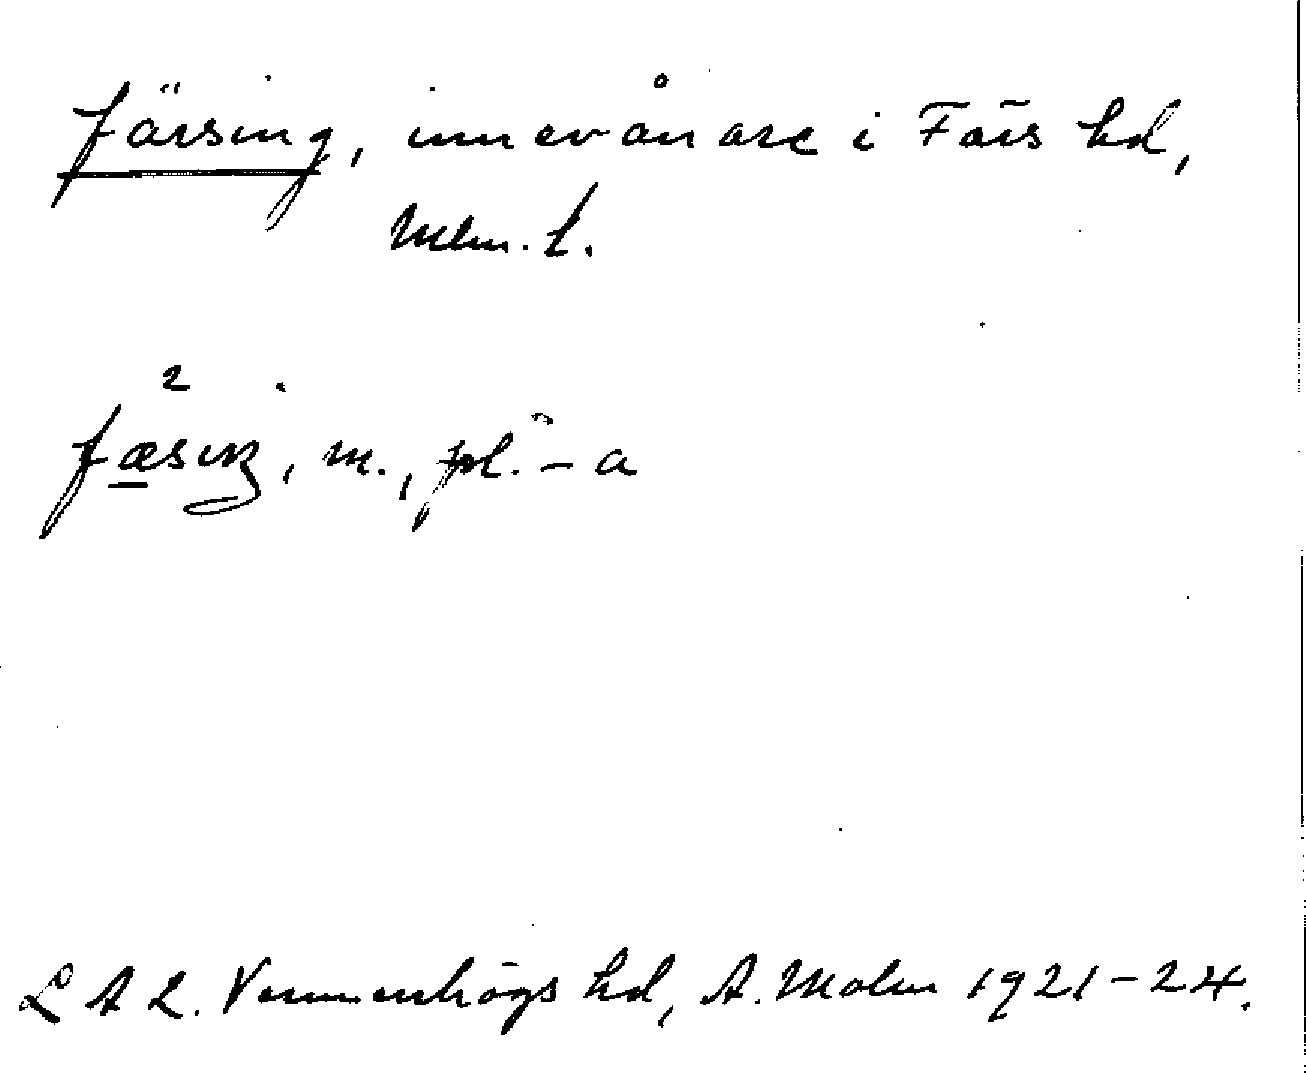 färsing, innevånare i Färs hd,
Mlm. l.
fæ²siŋ, m., pl. -a
LAL. Vemmenhögs hd, A. Malm 1921-24.